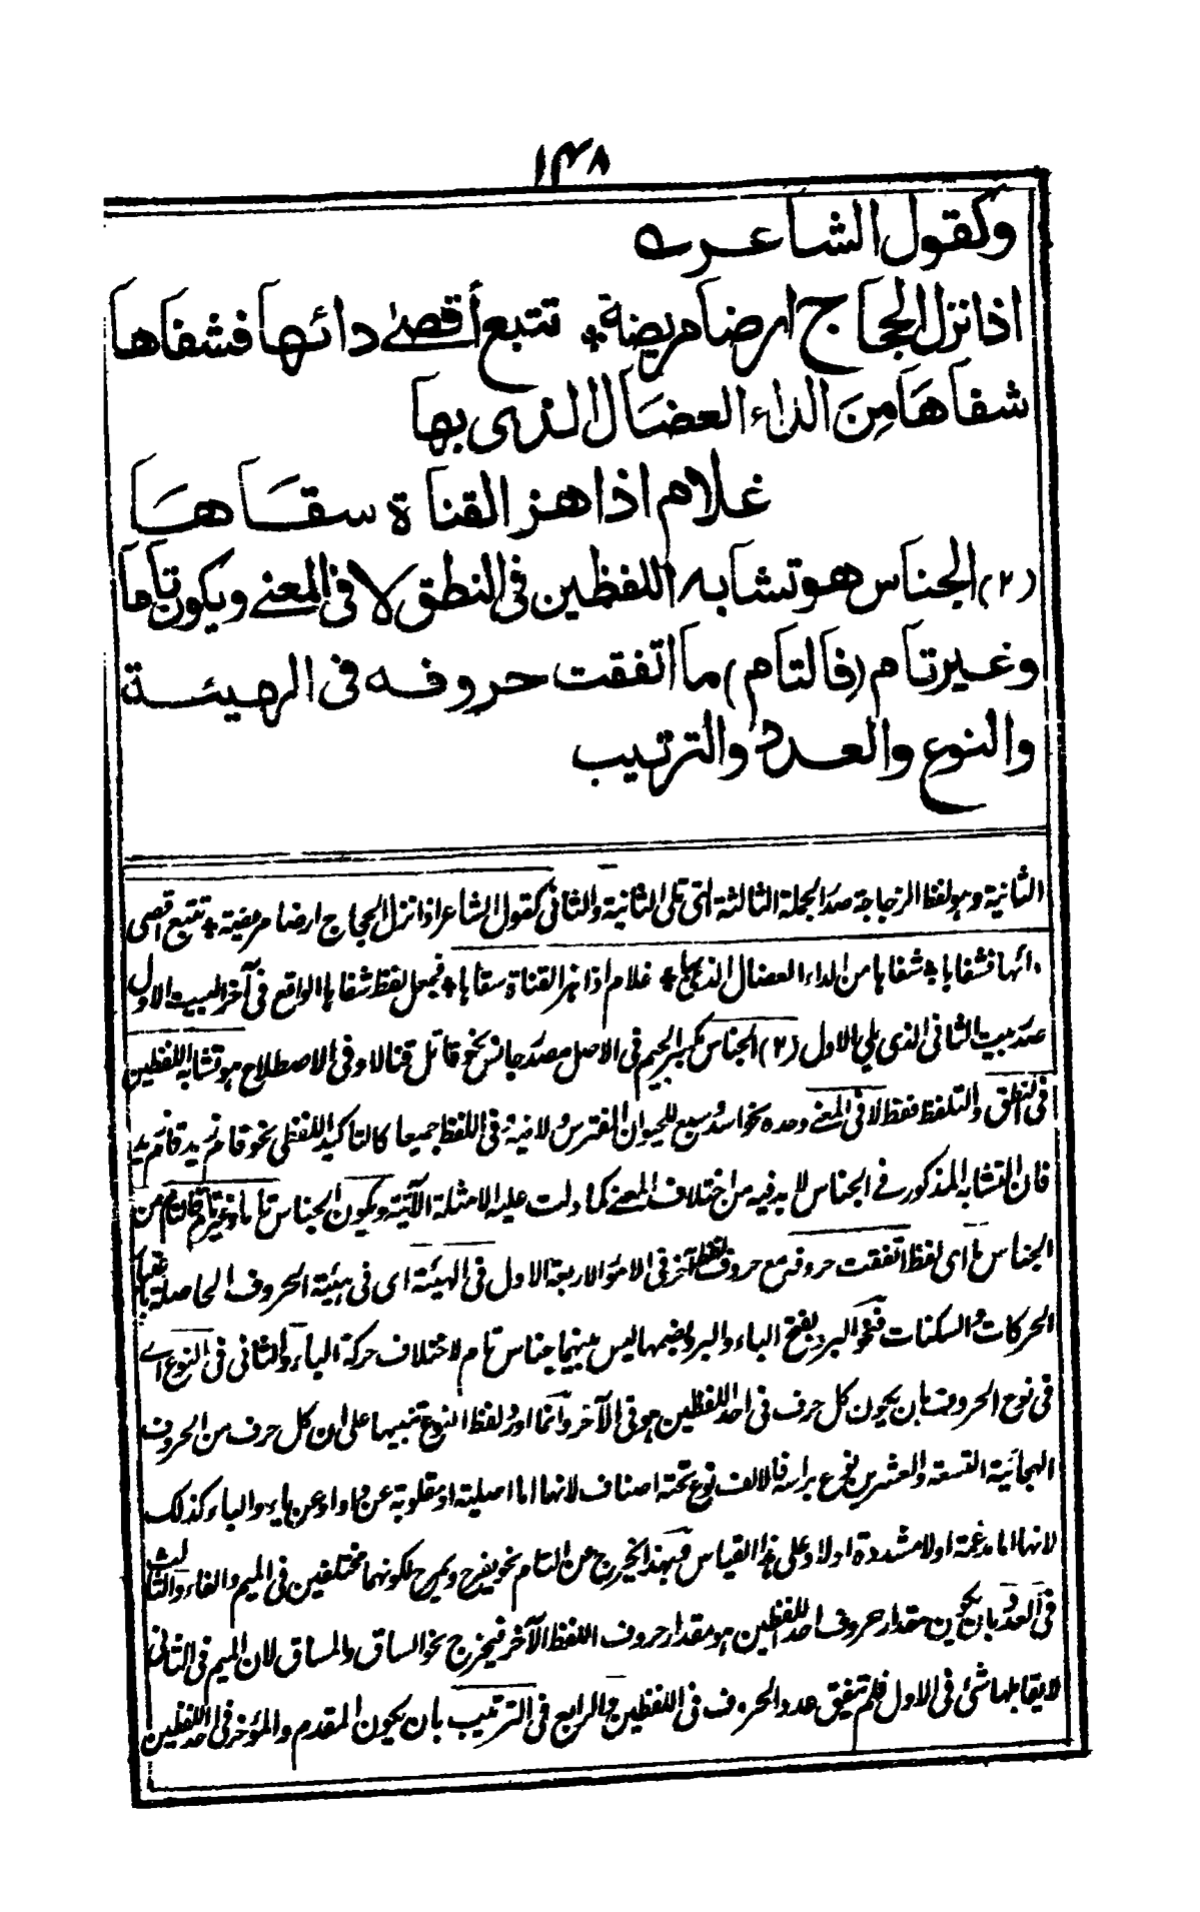 ١٤٨
وكقول الشاعر
اذا نزل الحجاج ارضا مريضة * تتبع أقصى دائها فشفاها
شفاها مِنَ الداء العضال الذى بها
غلام اذا هز القناة سقاها
(٢) الجناس هو تشابه اللفظين فى النطق لا فى المعنے ويكون تاما
وغير تام (فالتام) ما اتفقت حروفه فى الهيئة
والنوع والعدد والترتيب
الثانية وهو لفظ الزجاجة صدر الجملة الثالثة التى تلى الثانية والثانى كقول الشاعر اذا نزل الحجاج ارضا مريضة * تتبع اقصى
دائها فشفاها * شفاها من الداء العضال الذى بها * غلام اذا هز القناة سقاها * فجعل لفظ شفاها الواقع فى آخر البيت الاول
صدر بيت الثانى الذى يلي الاول (٢) الجناس بكسر الجيم فى الاصل مصدر جانس نحو قاتل قتالا وفى الاصطلاح هو تشابه اللفظين
فى النطق والتلفظ فقط لا فى المعنے وحده نحو اسد وسبع للحيوان المفترس ولا فيه وفى اللفظ جميعا كالتاكيد اللفظى نحو قام زيد قام زيد
فان التشابه المذكور فے الجناس لا بد فيه من اختلاف المعنے كما دلت عليه الامثلة الآتية ويكون الجناس تاما وغير تام فالتام من
الجناس ما اى لفظ اتفقت حروفه مع حروف لفظ آخر فى الامور الاربعة الاول فى الهيئة اى فى هيئة الحروف الحاصلة لها
الحركات والسكنات فنحو البرد بفتح الباء والبرد بضمها ليس بينهما جناس تام لاختلاف حركة الباء والثانى فى النوع اے
فى نوع الحروف بان يكون كل حرف فى احد اللفظين هو فى الآخر وانما اورد لفظ النوع تنبيها على ان كل حرف من الحروف
الهجائية التسعة والعشرين نوع براسه فالالف نوع تحته اصناف لانها اما اصلية او مقلوبة عن واو او عن ياء والباء كذلك
لانها اما مدغمة اولا مشددة اولا وعلى هذا القياس فبهذا يخرج عن التام نحو يفرح ويمرح لكونهما مختلفين فى الميم والفاء والثالث
فى العدد بان يكون مقدار حروف احد اللفظين هو مقدار حروف اللفظ الآخر فيخرج نحو الساق والمساق لان الميم فى الثانى
لا يقابلها شئ فى الاول فلم تتفق عدد الحروف فى اللفظين والرابع فى الترتيب بان يكون المقدم والمؤخر فى احد اللفظين